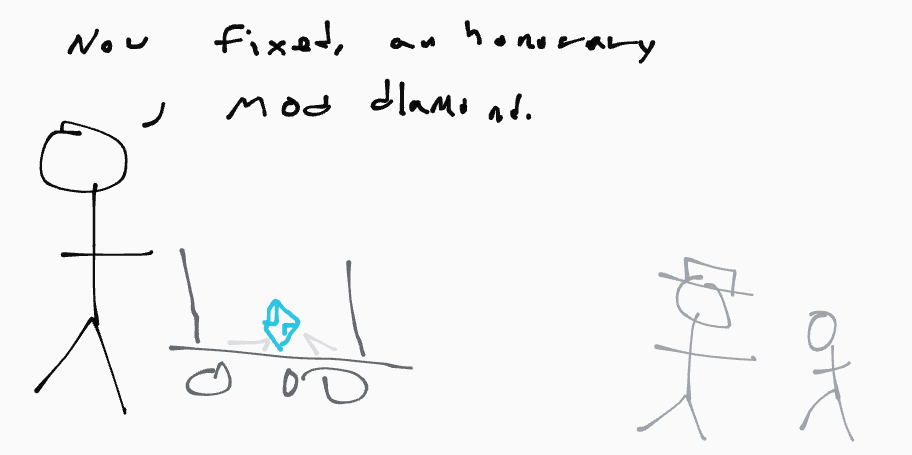 Now fixed, an honorary
mod diamond.